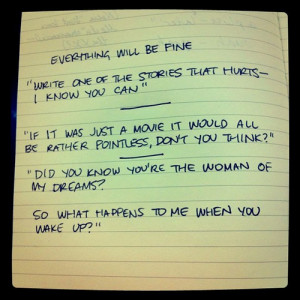 EVERYTHING WILL BE FINE
"WRITE ONE OF THE STORIES THAT HURTS—
I KNOW YOU CAN"
"IF IT WAS JUST A MOVIE IT WOULD ALL
BE RATHER POINTLESS, DON'T YOU THINK?"
"DID YOU KNOW YOU'RE THE WOMAN OF
MY DREAMS?
SO WHAT HAPPENS TO ME WHEN YOU
WAKE UP?"